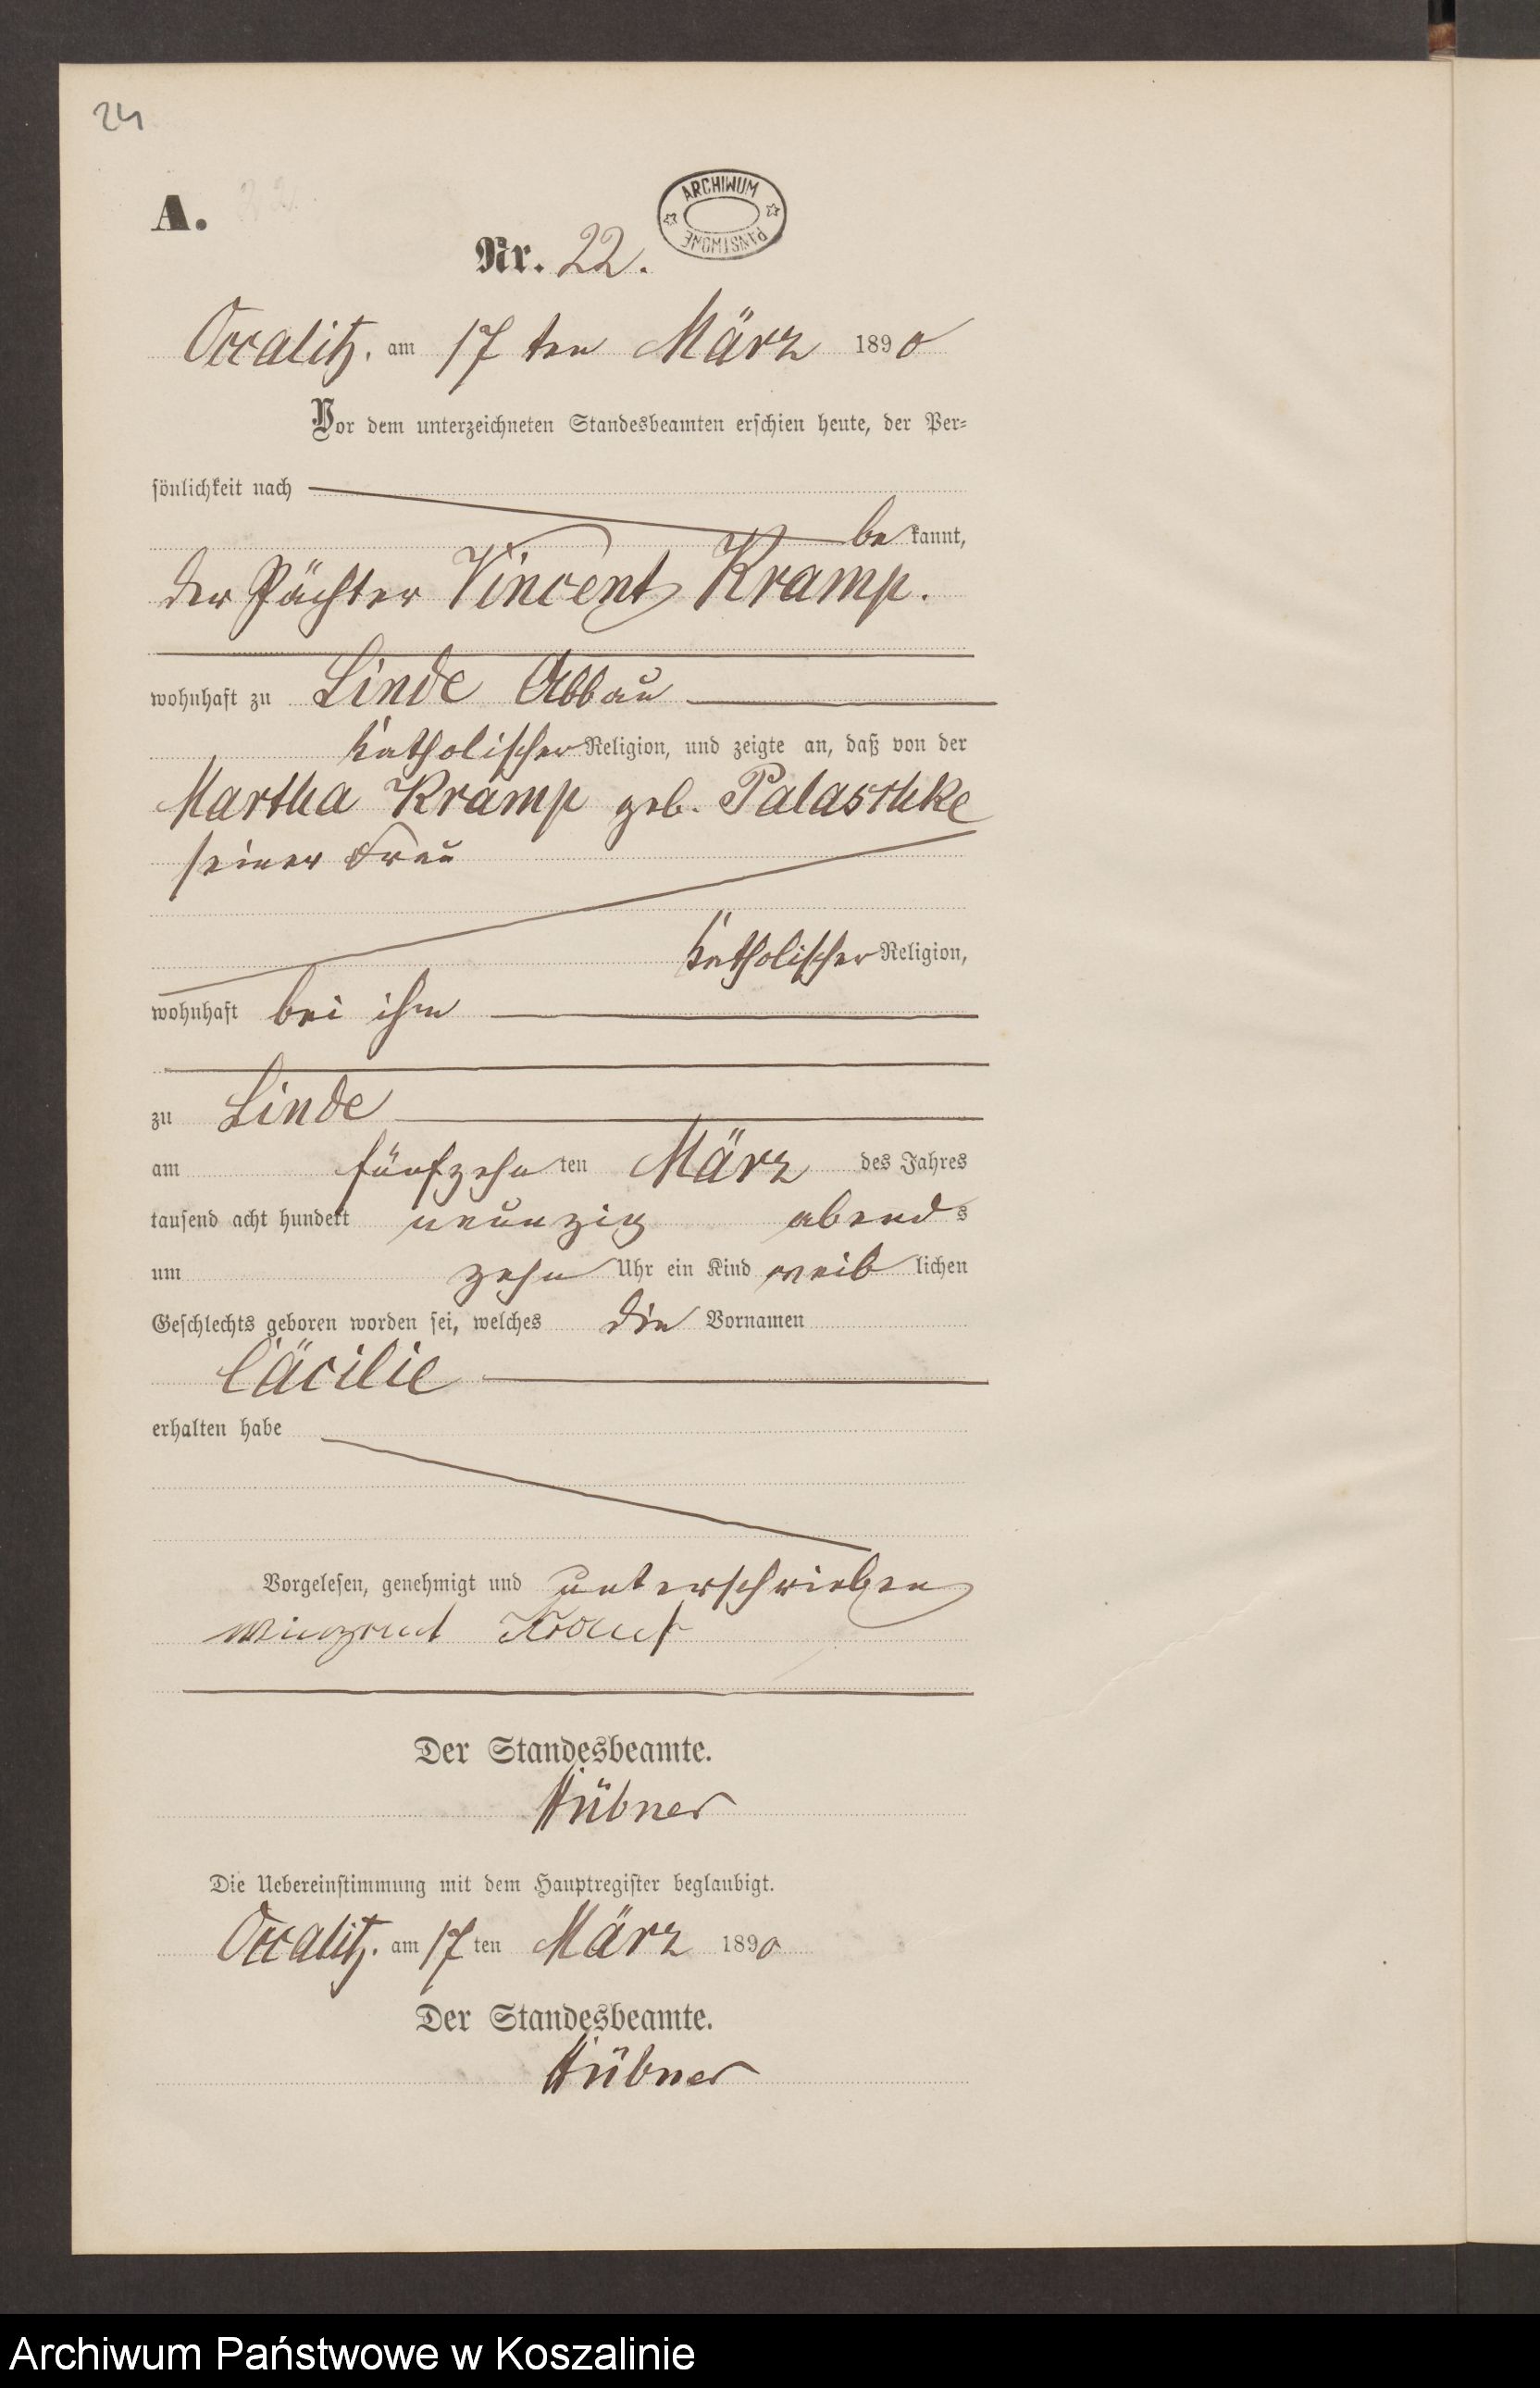 24
A.
ARCHIWUM
PAŃSTWOWE
Nr. 22.
Occalitz. am 17 ten März 1890
Vor dem unterzeichneten Standesbeamten erschien heute, der Per-
sönlichkeit nach
bekannt,
der Pächter Vincent Kramp.
wohnhaft zu Linde Abbau
katholischer Religion, und zeigte an, daß von der
Martha Kramp geb. Palaschke
seiner Frau
katholischer Religion,
wohnhaft bei ihm
zu Linde
am fünfzehnten März des Jahres
tausend acht hundert neunzig abends
um zehn Uhr ein Kind weiblichen
Geschlechts geboren worden sei, welches die Vornamen
Cäcilie
erhalten habe
Vorgelesen, genehmigt und unterschrieben
Kramp
Der Standesbeamte.
Hübner
Die Uebereinstimmung mit dem Hauptregister beglaubigt.
Occalitz. am 17 ten März 1890
Der Standesbeamte.
Hübner
Archiwum Państwowe w Koszalinie